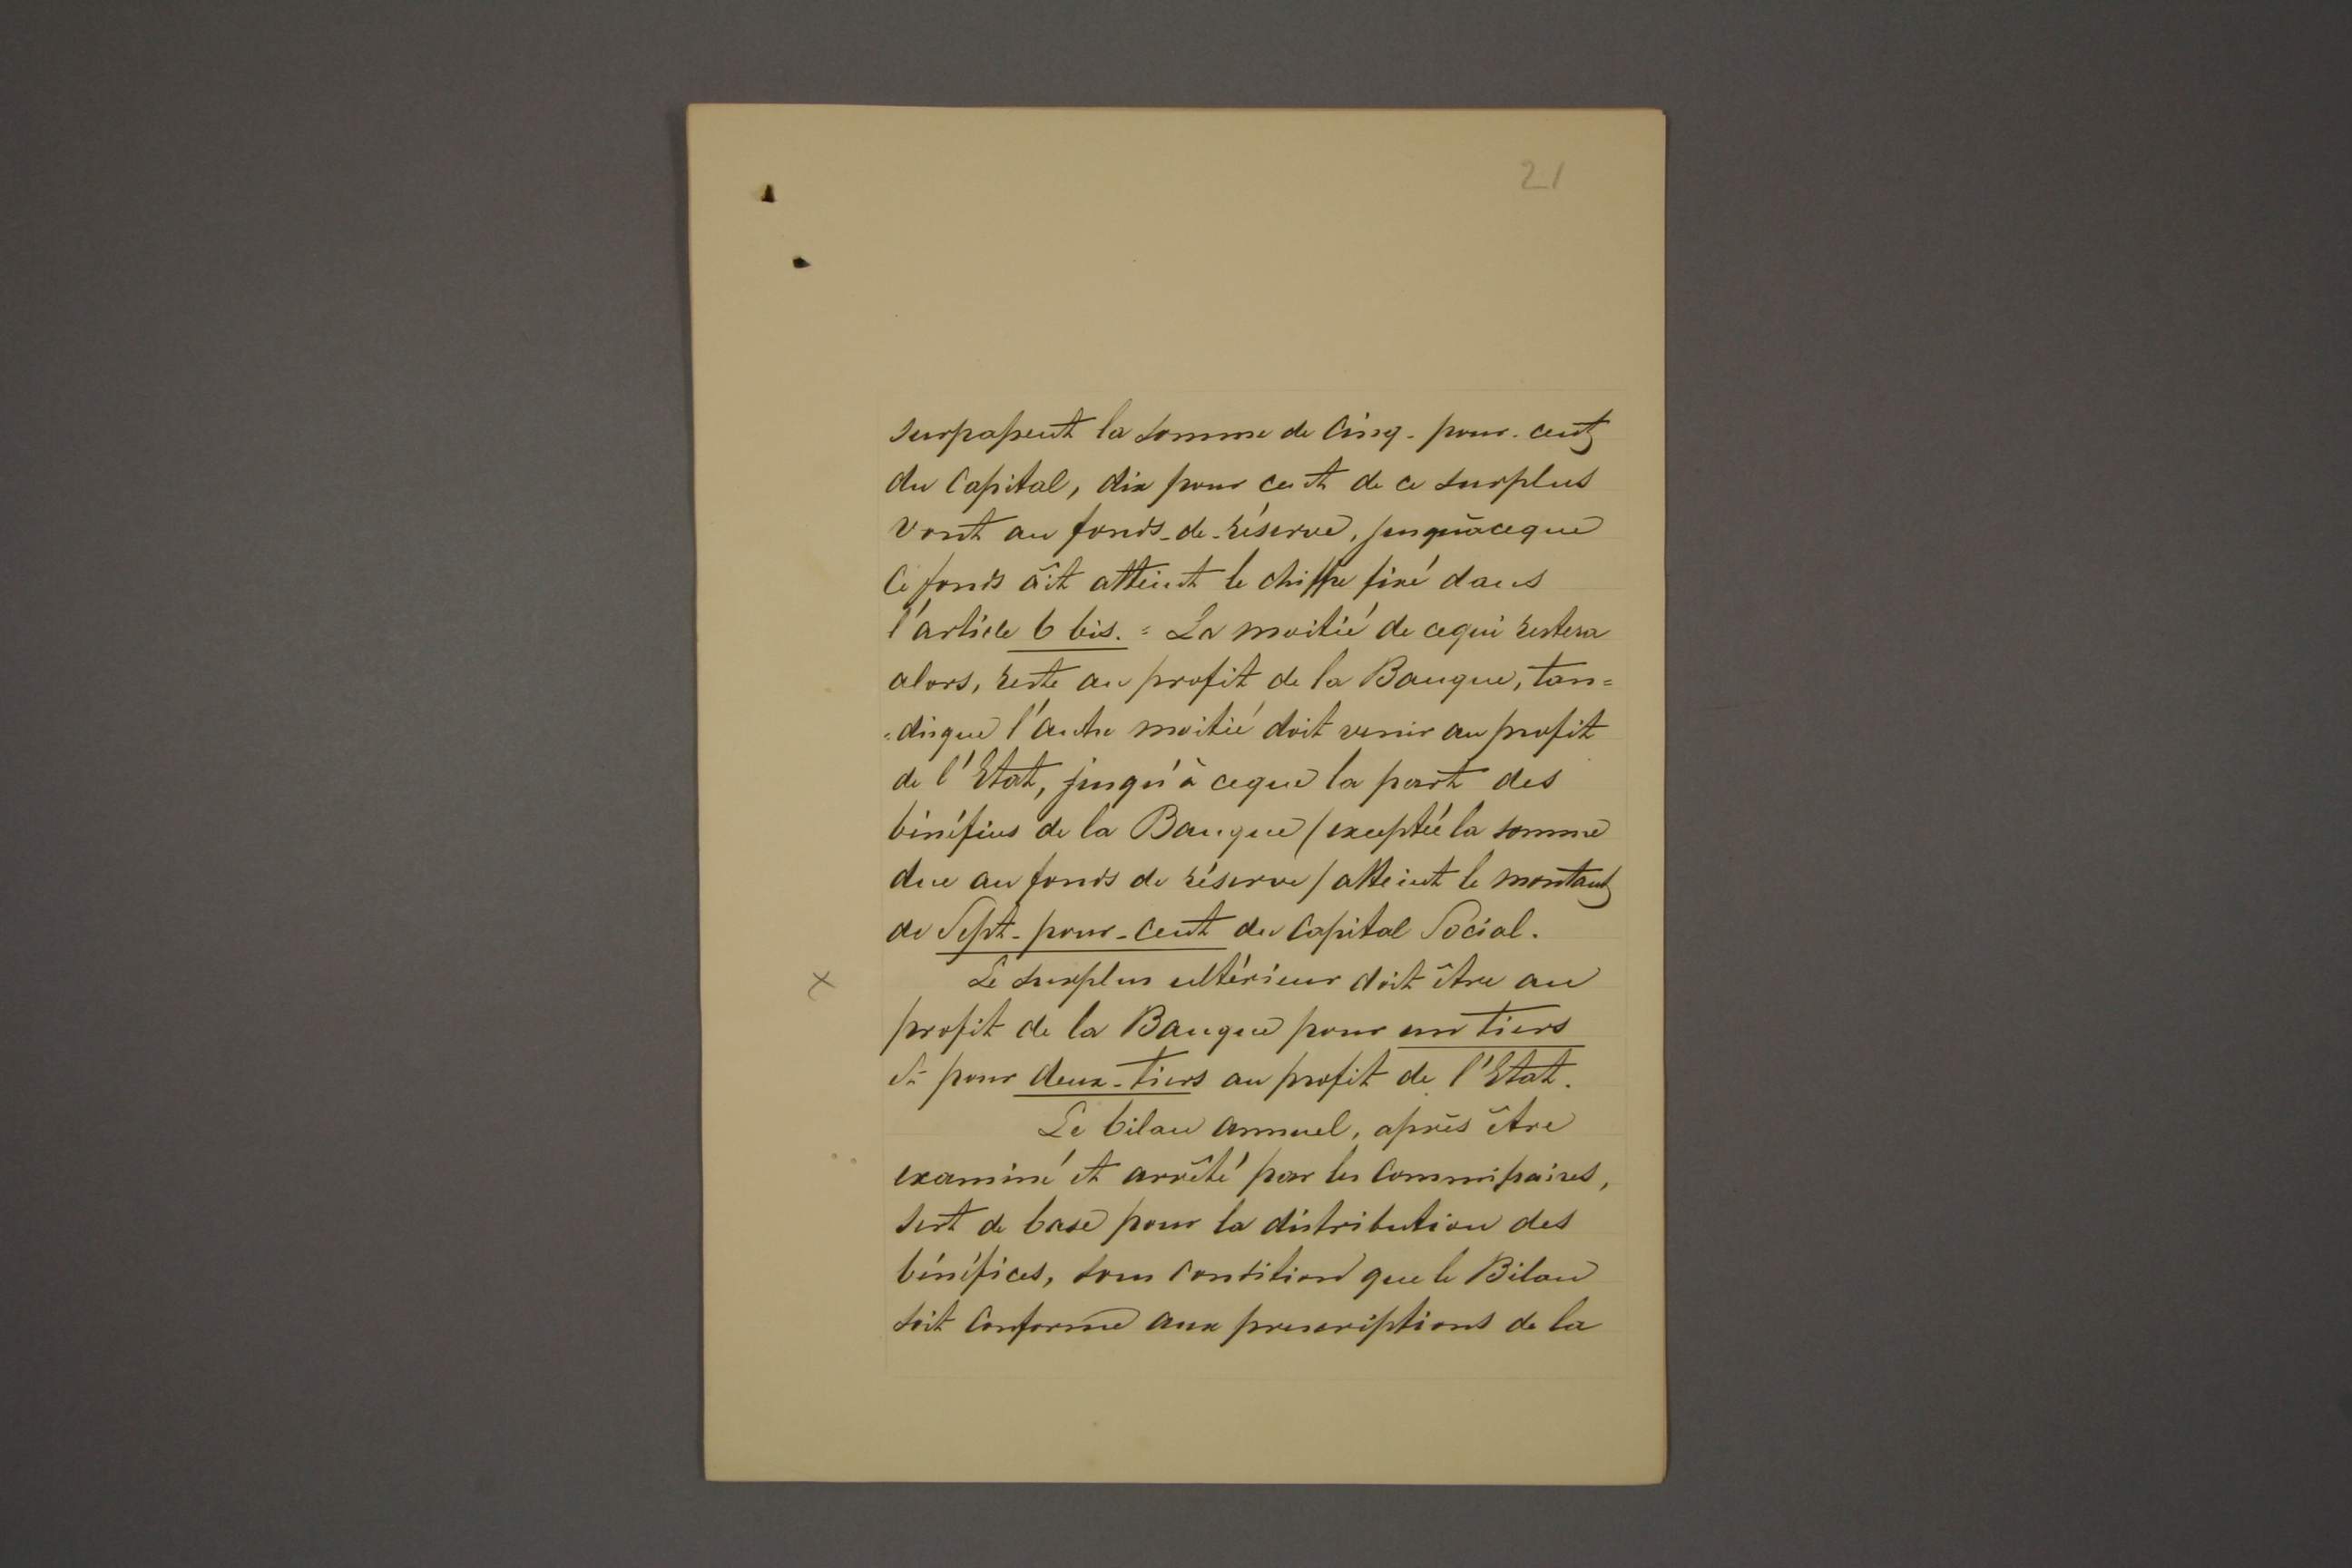 21
surpassent la somme de Cinq-pour-cent
du Capital, dix pour cent de ce surplus
vont au fonds-de-réserve, jusquàceque
ce fonds aît atteint le chiffre fixé dans
l'article 6 bis. = La moitié de cequi restera
alors, reste au profit de la Banque, tan=
=disque l'autre moitié doit venir au profit
de l'Etat, jusqu'à ceque la part des
bénéfices de la Banque / exceptée la somme
due au fonds de réserve / atteint le montant
de Sept-pour-cent du Capital Social.
x Le surplus ultérieur doit être au
profit de la Banque pour un tiers
et pour deux-tiers au profit de l'Etat.
Le bilan annuel, après être
examiné et arrêté par les Commissaires,
sert de base pour la distribution des
bénéfices, sous condition que le Bilan
soit Conforme aux prescriptions de la